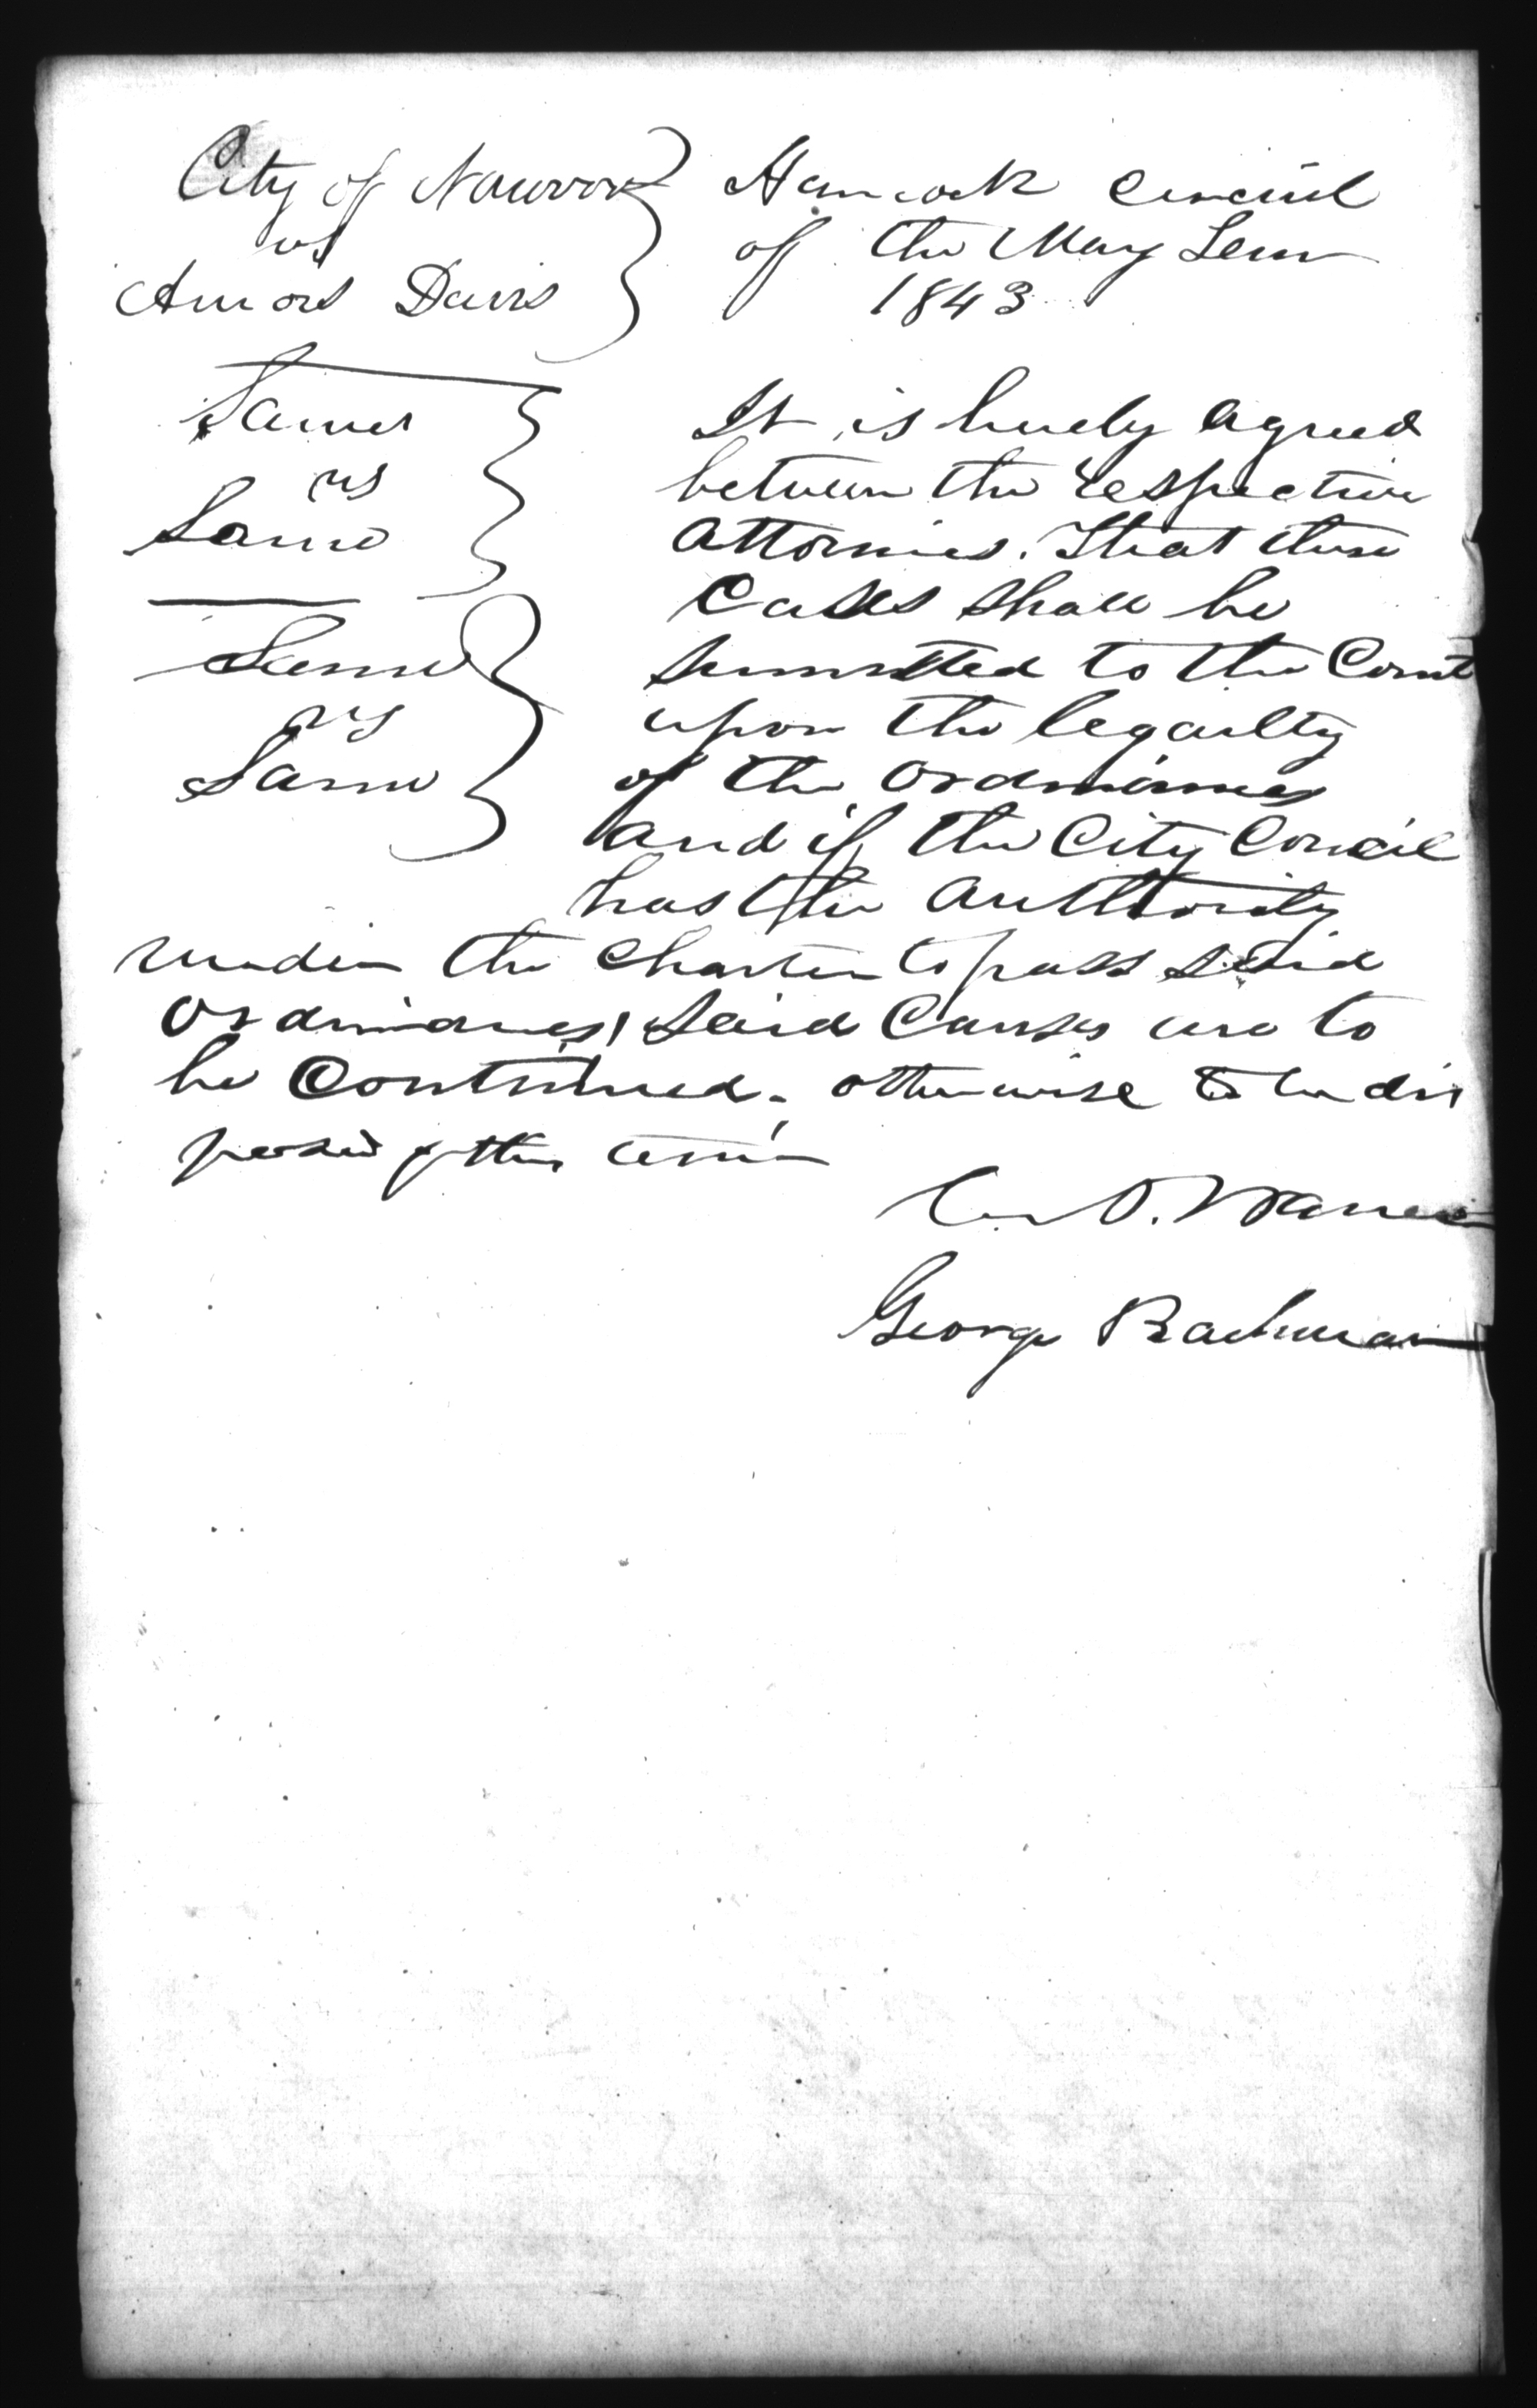 City of Nauvoo } Hancock Circuit
vs of the May Term
Amos Davis } 1843
Same } It is hurely agreed
vs between the respective
Same } Attornies. That these
Cases shall be
Same } summitted to the Court
vs upon the legailty
Same } of the Ordinances
and if the City Concil
has the Authority
under the Charter to pass said
Ordinances, Said Causes are to
be Continued, otherwise to be dis
posed of this term
C. Warren
George Bachman